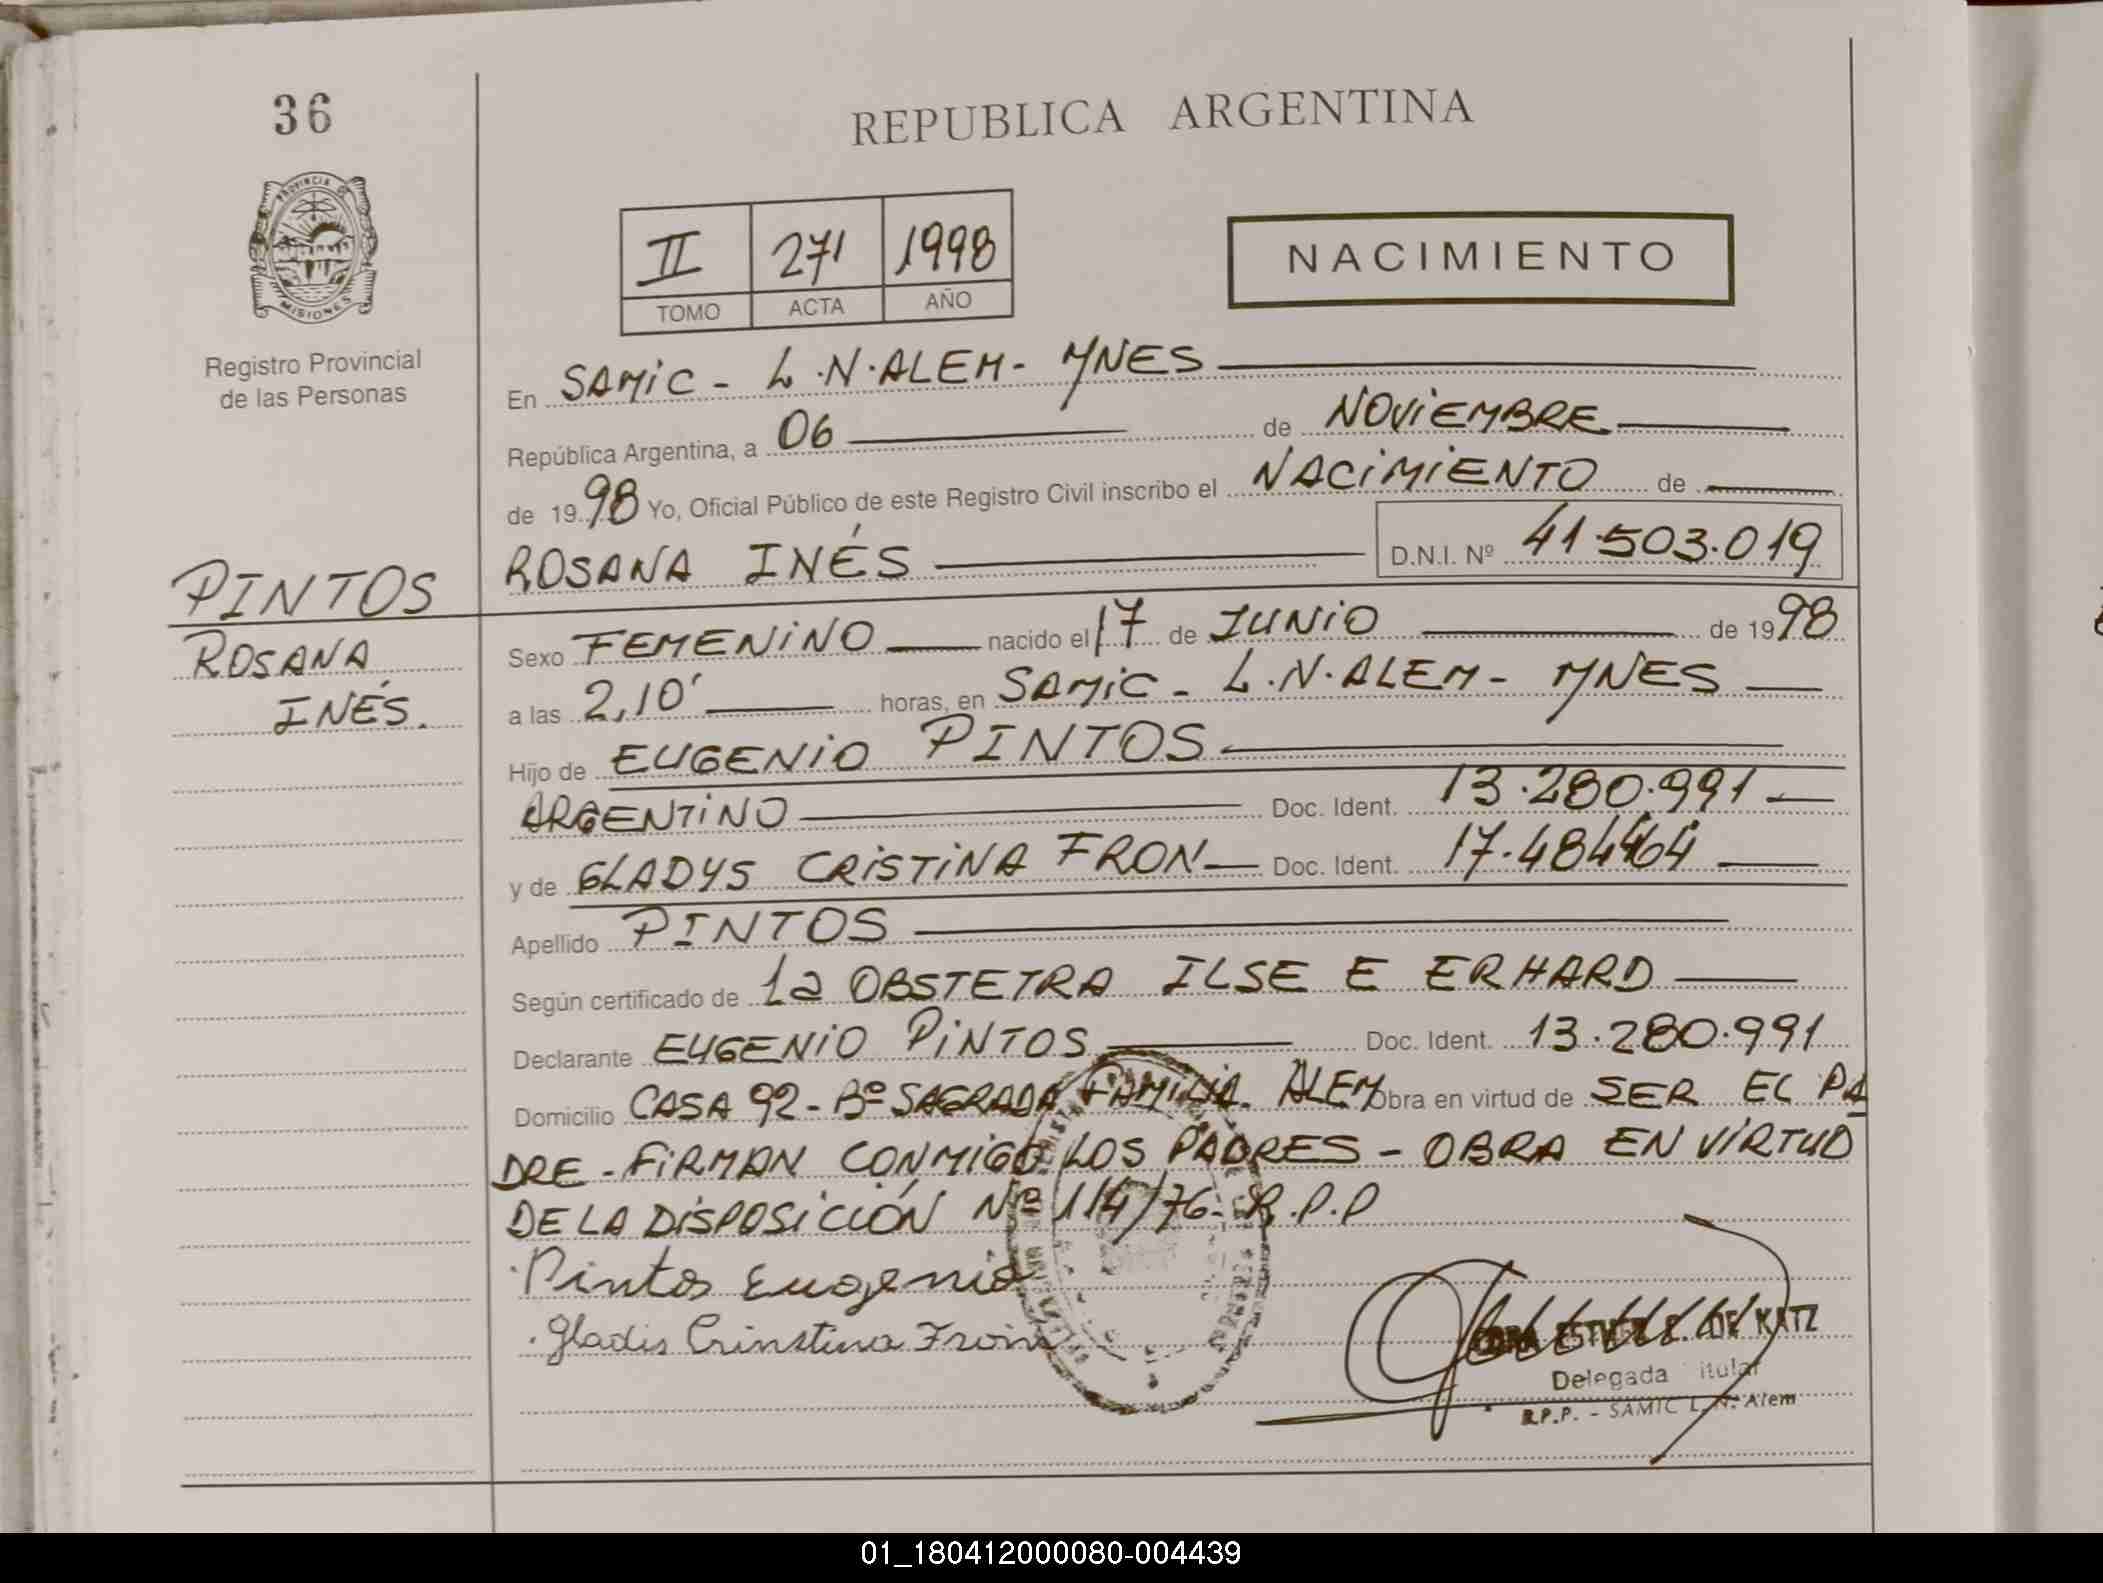 36
REPUBLICA ARGENTINA
PROVINCIA DE
MISIONES
Registro Provincial
de las Personas
II 271 1998
TOMO ACTA AÑO
NACIMIENTO
En SAMIC - L.N.ALEM- MNES
República Argentina, a 06 de NOVIEMBRE
de 1998 Yo, Oficial Público de este Registro Civil inscribo el NACIMIENTO de
ROSANA INÉS D.N.I. Nº 41.503.019
PINTOS
ROSANA
INÉS.
Sexo FEMENINO nacido el 17 de JUNIO de 1998
a las 2,10' horas, en SAMIC - L.N.ALEM - MNES
Hijo de EUGENIO PINTOS
ARGENTINO Doc. Ident. 13.280.991
y de GLADYS CRISTINA FRON Doc. Ident. 17.484464
Apellido PINTOS
Según certificado de La OBSTETRA ILSE E ERHARD
Declarante EUGENIO PINTOS Doc. Ident. 13.280.991
Domicilio CASA 92 - Bº SAGRADA FAMILIA. ALEM Obra en virtud de SER EL PA
DRE - FIRMAN CONMIGO LOS PADRES - OBRA EN VIRTUD
DE LA DISPOSICIÓN Nº 114/76- R.P.P
Pintos Eugenio
Gladis Crinstina Fron
DE KATZ
Delegada itular
R.P.P. - SAMIC L. N. Alem
01_180412000080-004439